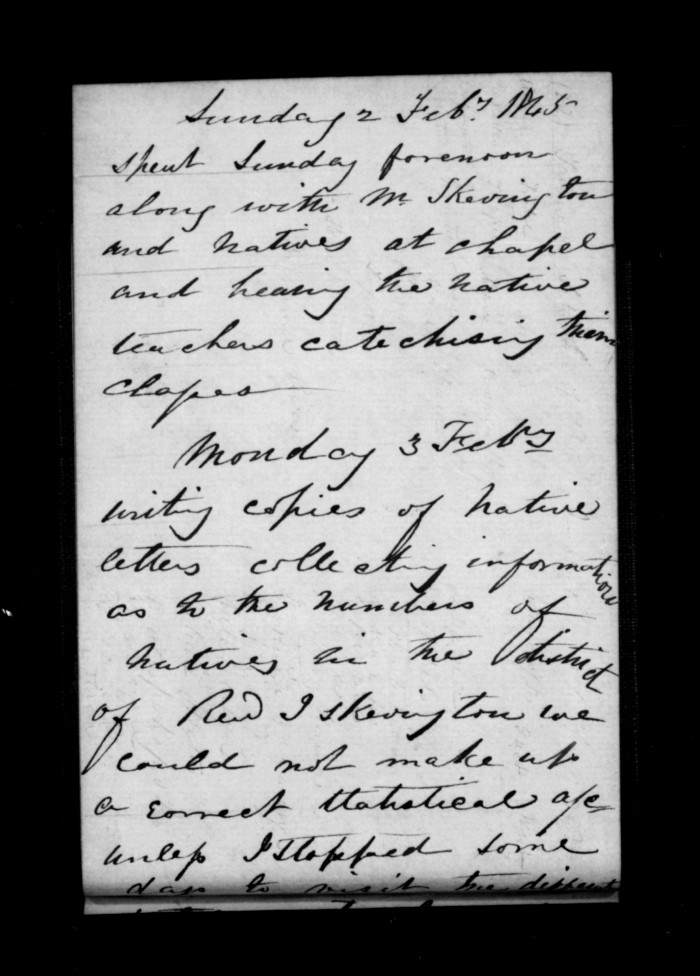 Sunday 2 Feby 1845
spent Sunday forenoon
along with Mr Skevington
and natives at chapel
and hearing the native
teachers catechising their
clapes
Monday 3 Febry
writing copies of native
letters collecting information
as to the numbers of
natives in the district
of Revd J Skevington we
could not make up
a correct statistical a/c
unless I stopped some
days to visit the different